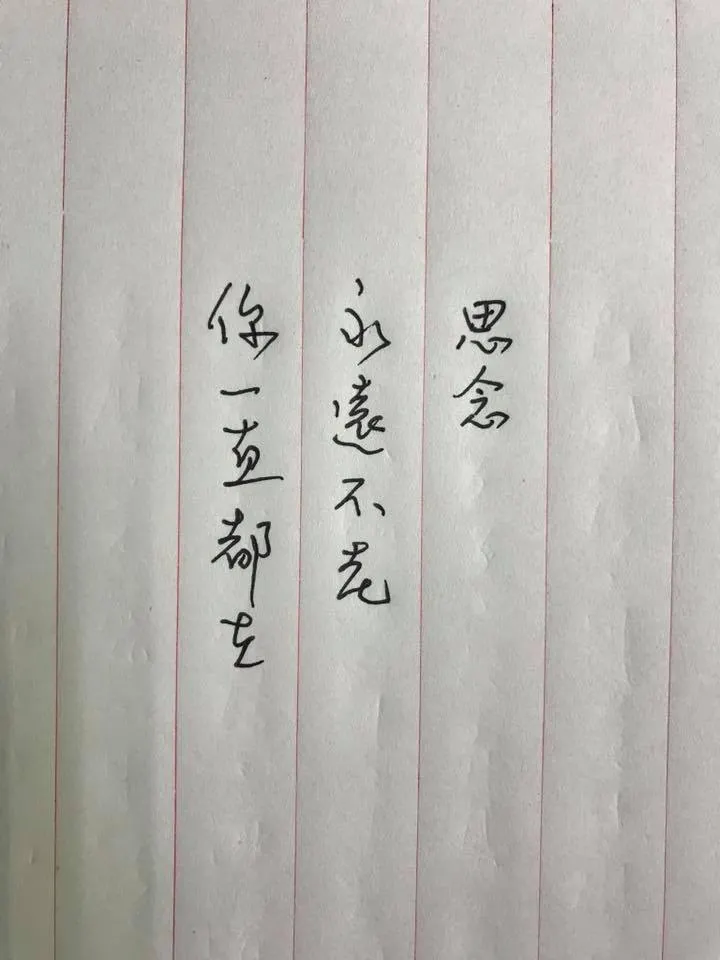 思念
永遠不老
你一直都在